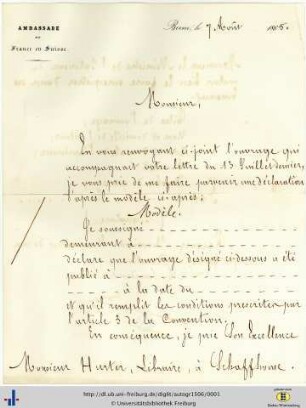 AMBASSADE
DE
France en Suisse
Berne, le 7 Août
Monsieur,
En vous renvoyant ci-joint l'ouvrage qui
accompagnait votre lettre du 13 Juillet dernier,
je vous prie de me faire parvenir une déclaration
d'après le modèle ci-après:
Modèle.
Je soussigné
demeurant à
déclare que l'ouvrage désigné ci-dessous a été
publié à
à la date du
et qu'il remplit les conditions prescrites par
l'article 3 de la Convention.
En conséquence, je prie Son Excellence
Monsieur Hurter, Libraire, à Schaffhouse.
http://dl.ub.uni-freiburg.de/diglit/autogr1506/0001
© Universitätsbibliothek Freiburg